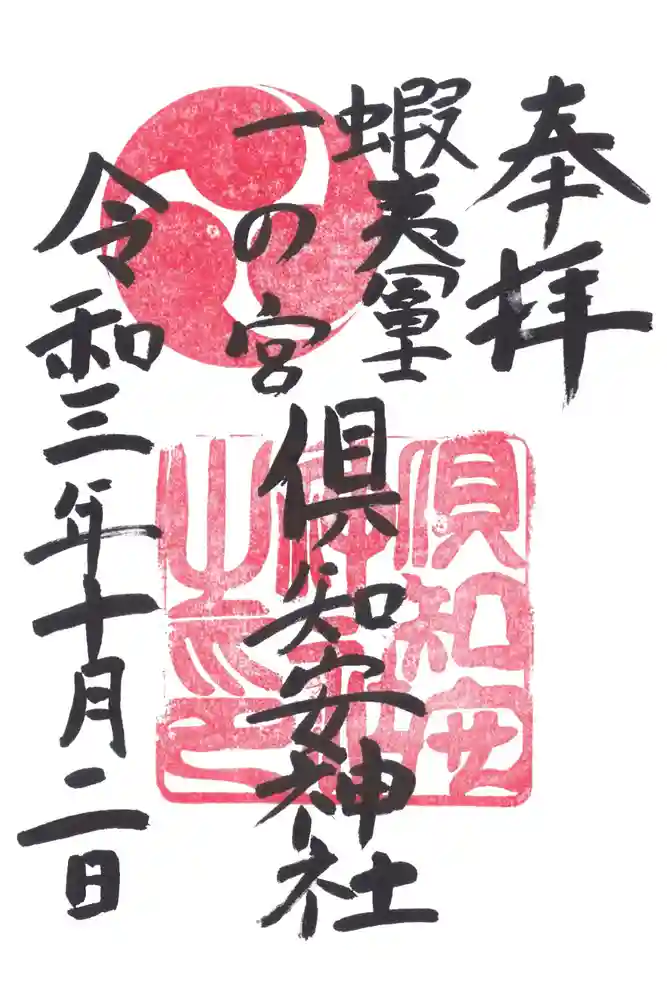 奉拝
蝦夷富士
一の宮
倶知安神社
令和三年十月二日
倶知安
神社
之印